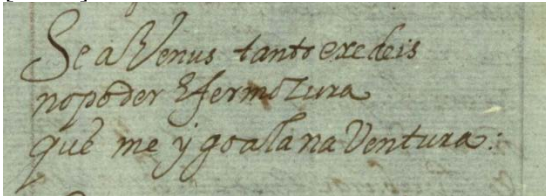 Se a Venus tanto exedeis
no poder E fermozura
que me ygoala na Ventura: